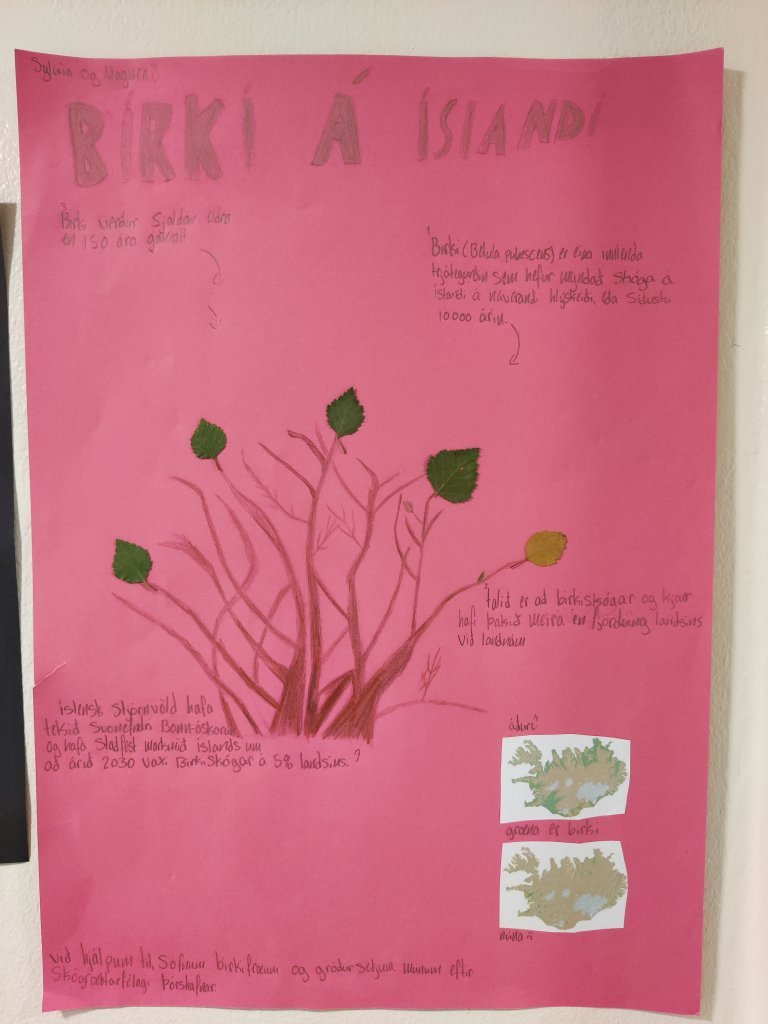 Sylwia og
BIRKI Á ÍSLANDI
3
Birki verdur Sjaldan eldra
en 150 ára gamalt
1
Birki (Betula pubescens) er eina innlenda
trjátegundin sem hefur myndad skóga á
íslandi á núverandi hlýskeidi, eda Sidustu
10.000 árin.
2
talid er ad birkiskógar og kjarr
hafi þakid meira en fjórdung landsins
vid landnám
íslensk Stjórnvöld hafa
tekid Svonefndri Bonn-áskorun
og hafa Stadfest markmid íslands um
ad árid 2030 vaxi Birkiskógar á 5% landsins.
ádur
græna er birki
núna
vid hjálpum til, Söfnum birkifræum og gródursetjum. munum eftir
Skógræktarfélagi Þórshafnar.